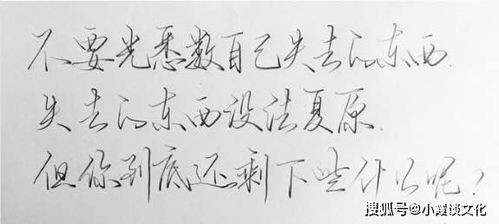 不要光悉数自己失去的东西.
失去的东西没法复原.
但你到底还剩下些什么呢?
搜狐号@小霞谈文化